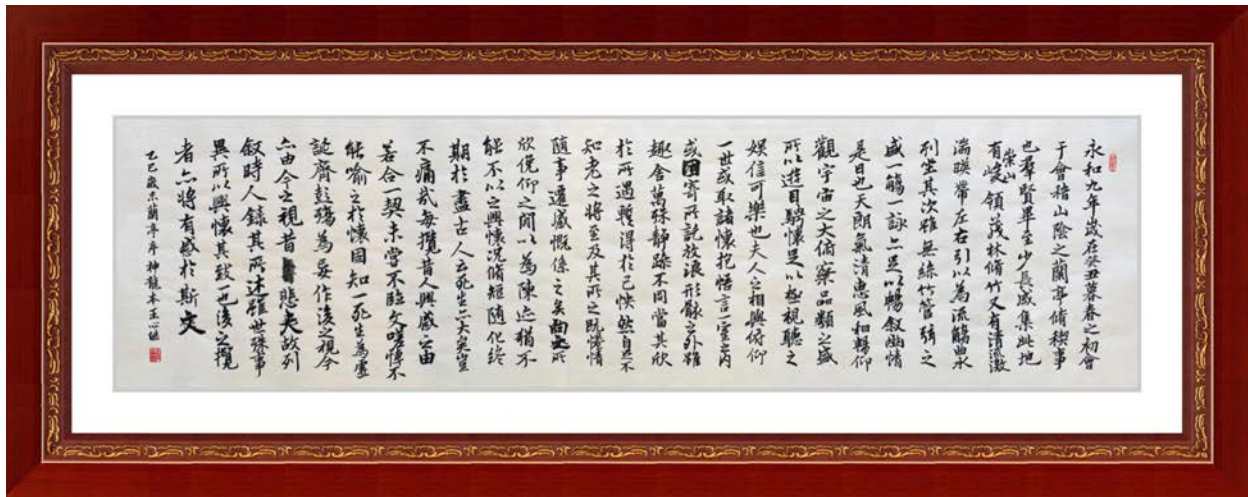 永和九年歲在癸丑暮春之初會
于會稽山陰之蘭亭脩禊事
也羣賢畢至少長咸集此地
有崇山峻領茂林脩竹又有清流激
湍暎帶左右引以為流觴曲水
列坐其次雖無絲竹管弦之
盛一觴一詠亦足以暢敘幽情
是日也天朗氣清惠風和暢仰
觀宇宙之大俯察品類之盛
所以遊目騁懷足以極視聽之
娛信可樂也夫人之相與俯仰
一世或取諸懷抱悟言一室之內
或因寄所託放浪形骸之外雖
趣舍萬殊靜躁不同當其欣
於所遇暫得於己怏然自足不
知老之將至及其所之既惓情
隨事遷感慨係之矣向之所
欣俛仰之閒以為陳迹猶不
能不以之興懷況脩短隨化終
期於盡古人云死生亦大矣豈
不痛哉每攬昔人興感之由
若合一契未嘗不臨文嗟悼不
能喻之於懷固知一死生為虛
誕齊彭殤為妄作後之視今
亦由今之視昔悲夫故列
敘時人錄其所述雖世殊事
異所以興懷其致一也後之攬
者亦將有感於斯文
乙巳歲末蘭亭序神龍本王